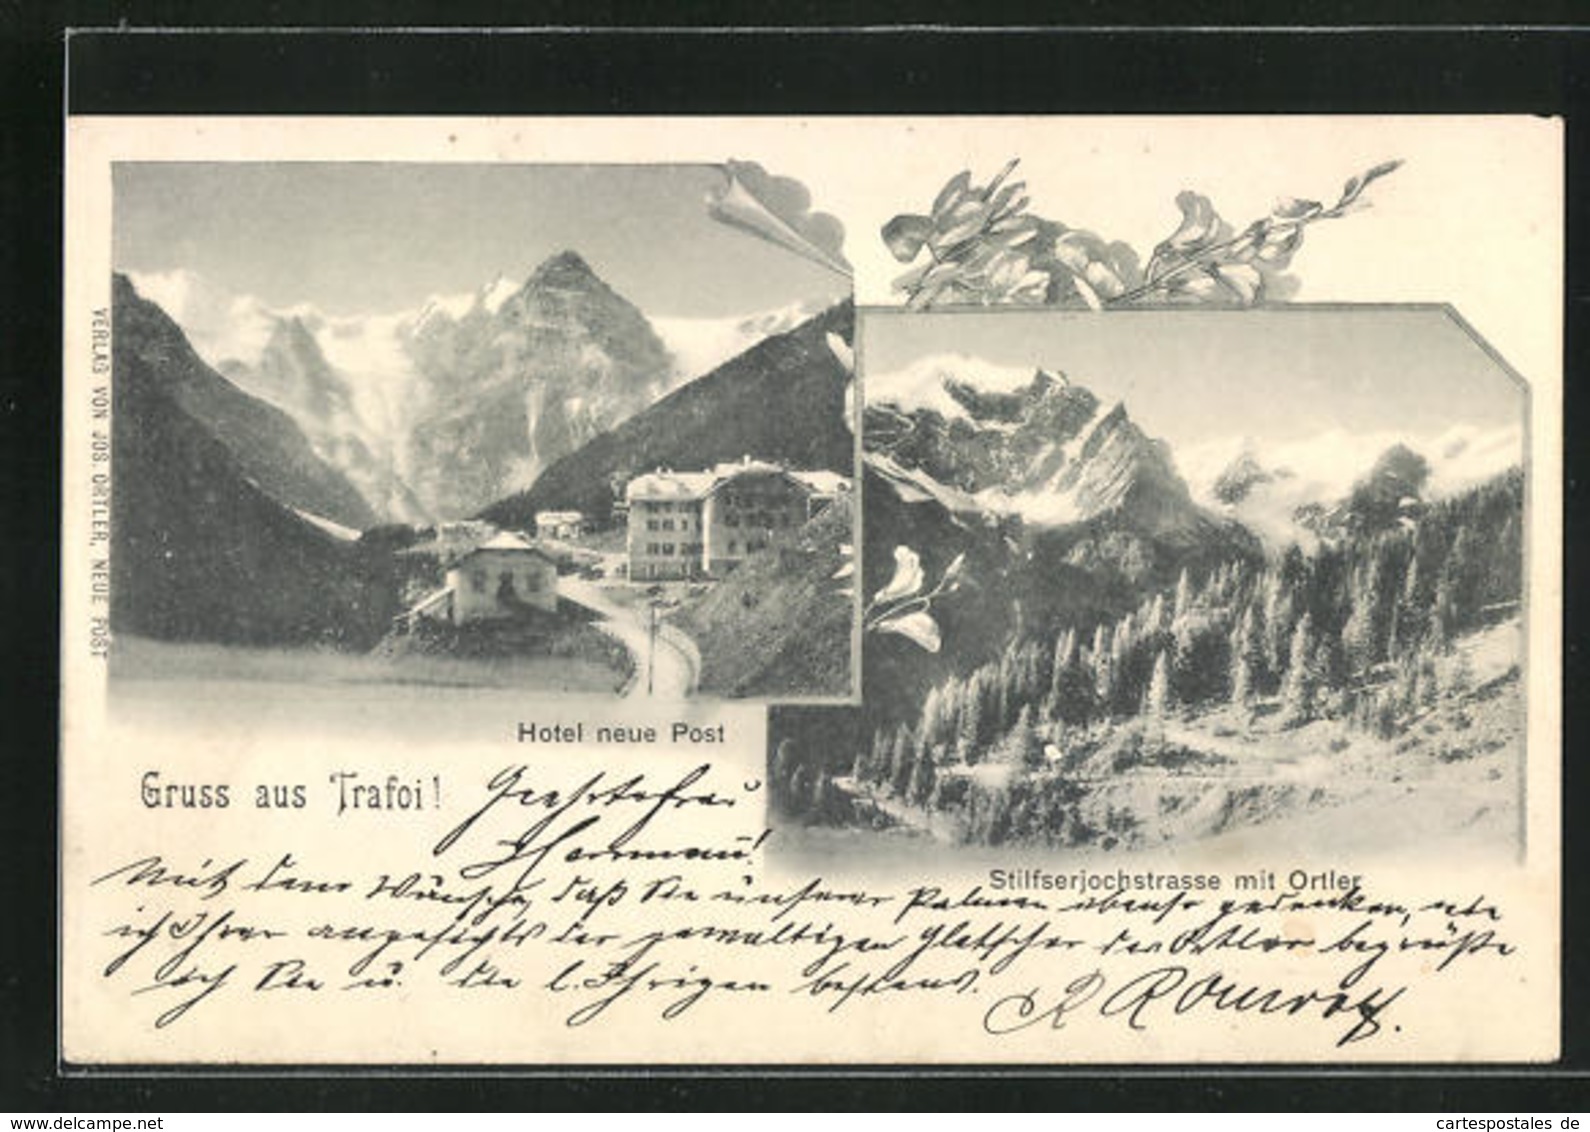 VERLAG VON JOS. ORTLER, NEUE POST
Hotel neue Post
Gruss aus Trafoi!
Stilfserjochstrasse mit Ortler
Mit dem Wunsche, daß Sie unserer Palmen ebenso gedenken, wie
ich Ihrer angesichts der gewaltigen Gletscher des Ortler begrüße
ich Sie u. die l. Ihrigen bestens.
www.delcampe.net
cartespostales de